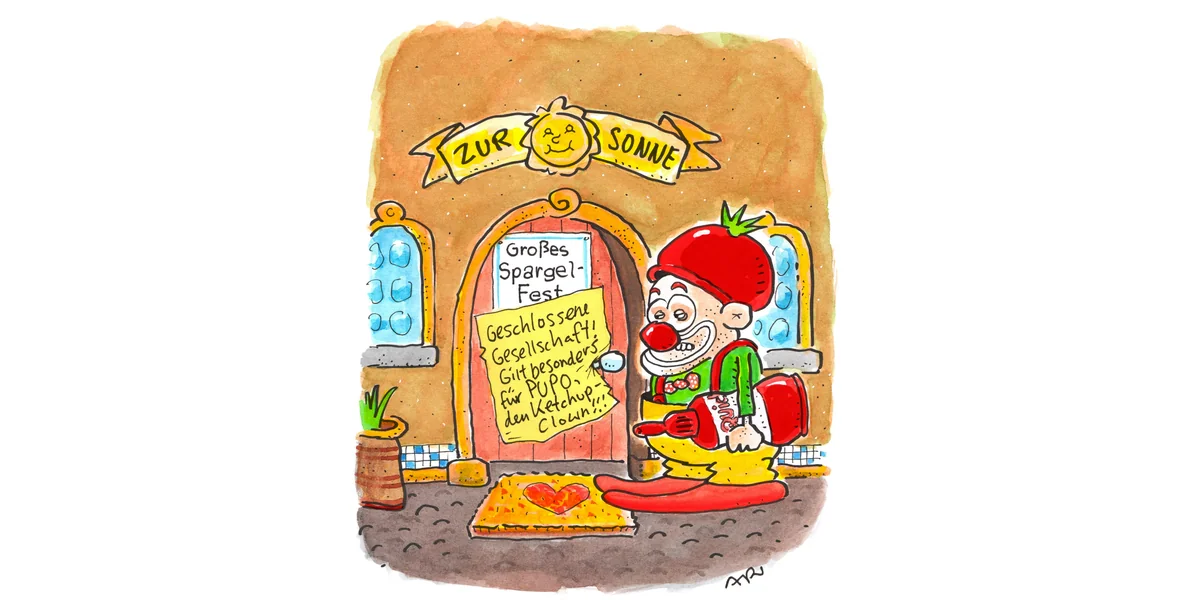 ZUR SONNE
Großes
Spargel-
Fest
Geschlossene
Gesellschaft!
Gilt besonders
für PUPO,
den Ketchup-
Clown!!!